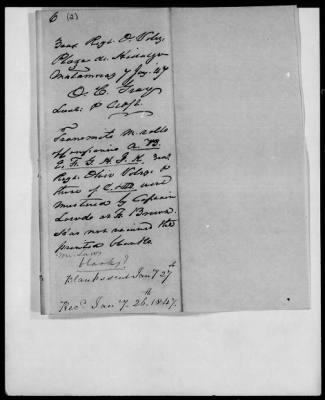 6 (2)
3rd Regt. O. Vols.
Plaza de Hidalgo
Matamoras 7 Jany. '47
O. C. Gray
Lieut. &
Transmits m. rolls
of Companies A. B.
E. F. G. H. I. K. 3rd
Regt. Ohio Vols. &
those of C. & D. were
mustered by Captain
at Ft. Brown.
Has not received the
printed blanks
blanks?
Blanks sent Jany 27th
Rec'd Jany. 26th 1847.